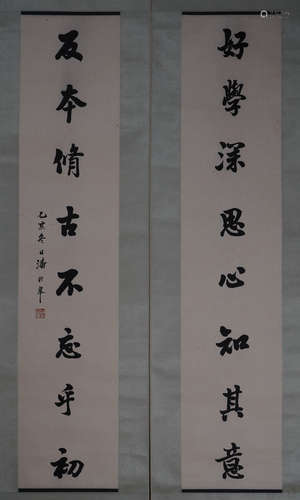 好學深思心知其意
反本脩古不忘乎初
乙亥冬日潘